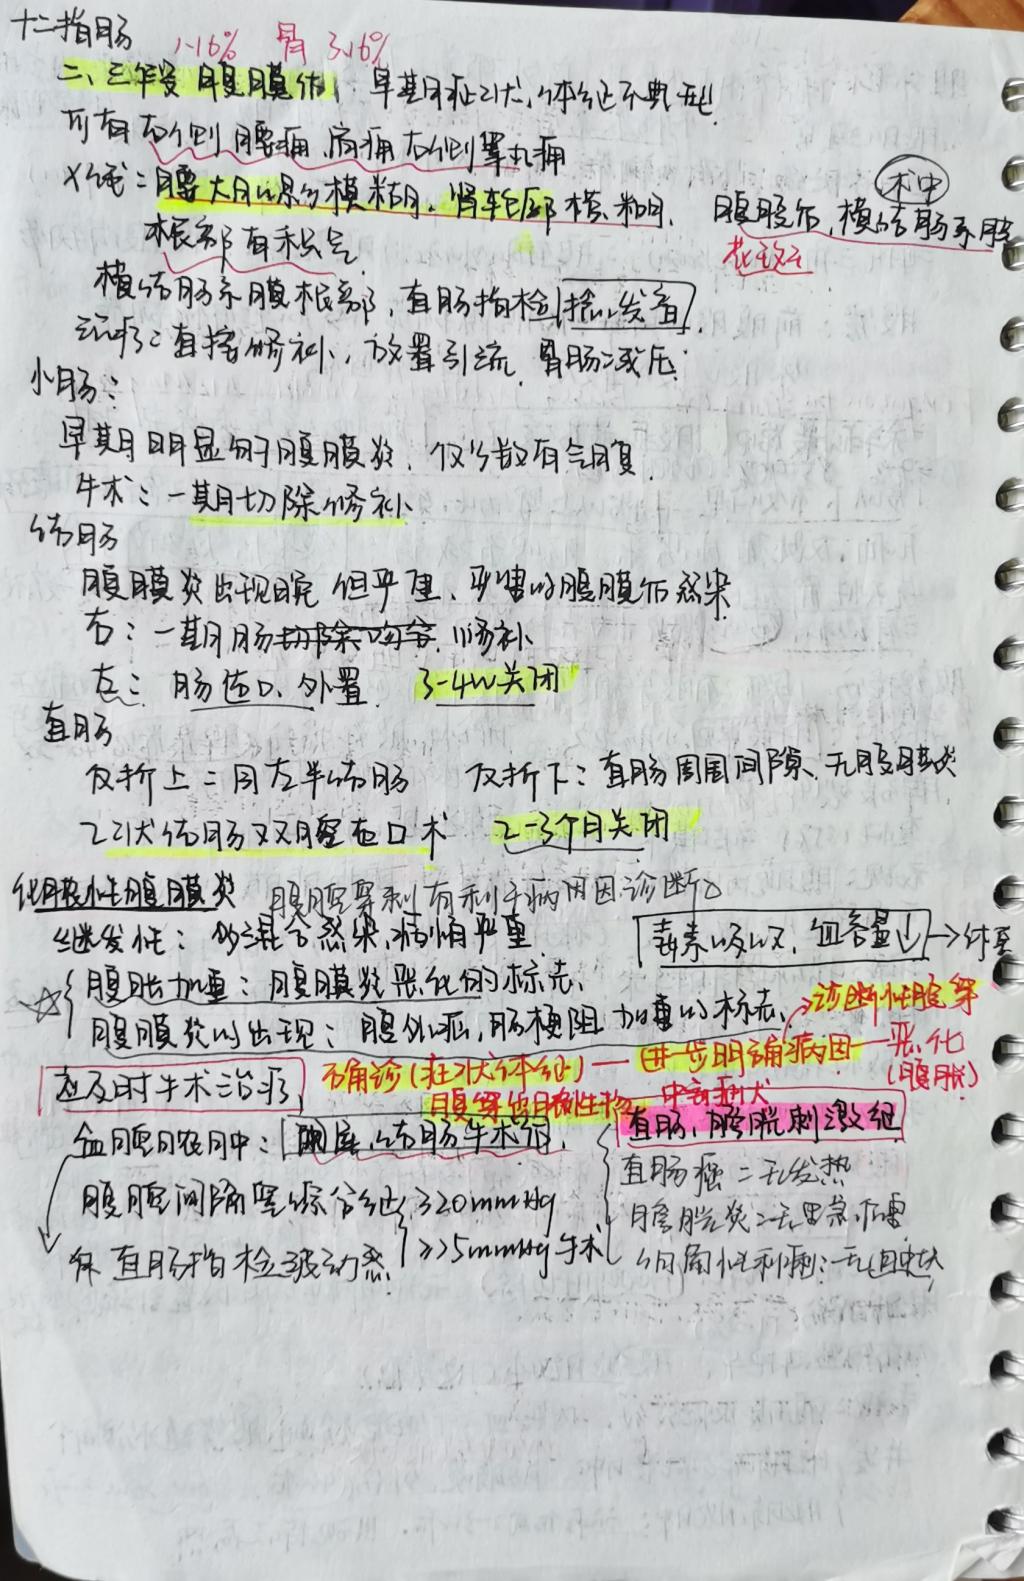 十二指肠
1-16%  胃 3.16%
二、三段 腹膜后, 早期症状,体征不典型
可有右侧腰痛,肩痛右侧睾丸痛
X线:腰大肌影模糊,肾轮廓模糊,
术中
腹膜后,横结肠系膜
根部有积气
花致云
横结肠系膜根部,直肠指检 捻发音
治疗:直接修补,放置引流,胃肠减压
小肠:
早期明显的腹膜炎,仅少数有气腹
手术:一期切除修补
结肠
腹膜炎出现晚 但严重,严重的腹膜后感染
右:一期肠切除吻合,修补
左: 肠造口、外置 3-4W关闭
直肠
反折上:同左半结肠 反折下:直肠周围间隙,无腹膜炎
乙状结肠双腔造口术 2-3个月关闭
化脓性腹膜炎 腹腔穿刺有利于病因诊断
继发性:多混合感染,病情严重
毒素吸收,血容量↓→休克
☆ 腹胀加重:腹膜炎恶化的标志、
腹膜炎的出现:腹外疝,肠梗阻加重的标志、
诊断性腹穿
应及时手术治疗
不确诊(症状体征)—进一步明确病因—恶化
(腹胀)
中毒症状
盆腔脓肿: 阑尾、结肠手术后,
直肠,膀胱刺激征
直肠癌:无发热
腹腔间隔室综合征 ≥20mmHg
膀胱炎:无里急后重
≥25mmHg手术
直肠指检 波动感